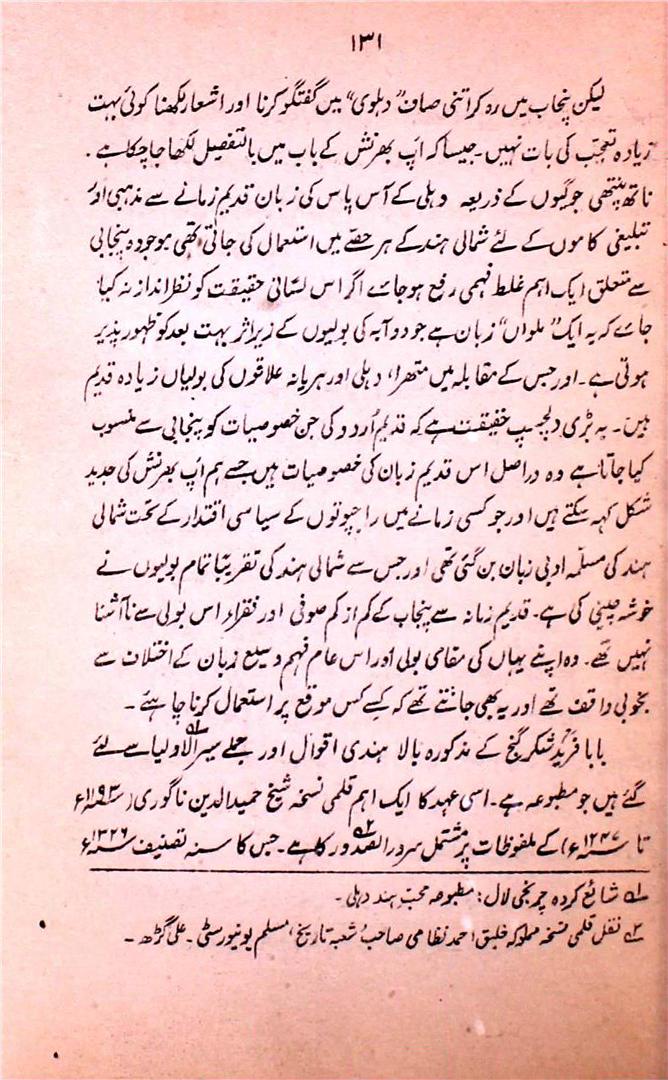 ۱۳۱
لیکن پنجاب میں رہ کر اتنی صاف "دہلوی" میں گفتگو کرنا اور اشعار لکھنا کوئی بہت
زیادہ تعجب کی بات نہیں۔ جیسا کہ اپ بھرنش کے باب میں بالتفصیل لکھا جا چکا ہے۔
ناتھ پنتھی جوگیوں کے ذریعہ دہلی کے آس پاس کی زبان قدیم زمانے سے مذہبی اور
تبلیغی کاموں کے لئے شمالی ہند کے ہر حصے میں استعمال کی جاتی تھی موجودہ پنجابی
سے متعلق ایک اہم غلط فہمی رفع ہو جائے اگر اس لسانی حقیقت کو نظر انداز نہ کیا
جائے کہ یہ ایک "ملواں" زبان ہے جو دوآبہ کی بولیوں کے زیر اثر بہت بعد کو ظہور پذیر
ہوتی ہے۔ اور جس کے مقابلہ میں متھرا، دہلی اور ہریانہ علاقوں کی بولیاں زیادہ قدیم
ہیں۔ یہ بڑی دلچسپ حقیقت ہے کہ قدیم اُردو کی جن خصوصیات کو پنجابی سے منسوب
کیا جاتا ہے وہ دراصل اس قدیم زبان کی خصوصیات ہیں جسے ہم اپ بھرنش کی جدید
شکل کہہ سکتے ہیں اور جو کسی زمانے میں راجپوتوں کے سیاسی اقتدار کے تحت شمالی
ہند کی مسلّمہ ادبی زبان بن گئی تھی اور جس سے شمالی ہند کی تقریباً تمام بولیوں نے
خوشہ چینی کی ہے۔ قدیم زمانہ سے پنجاب کے کم از کم صوفی اور فقراء اس بولی سے ناآشنا
نہیں تھے۔ وہ اپنے یہاں کی مقامی بولی اور اس عام فہم وسیع زبان کے اختلاف سے
بخوبی واقف تھے اور یہ بھی جانتے تھے کہ کسے کس موقع پر استعمال کرنا چاہئے۔
بابا فرید شکر گنج کے مذکورہ بالا ہندی اقوال اور جملے سیر الاولیا ؂۱ سے لئے
گئے ہیں جو مطبوعہ ہے۔ اسی عہد کا ایک اہم قلمی نسخہ شیخ حمید الدین ناگوری (۱۱۹۳ء
تا ۱۲۴۷ء) کے ملفوظات پر مشتمل سرور الصدور ؂۲ کا ہے۔ جس کا سنہ تصنیف ۱۳۲۶ء
؂۱ شائع کردہ چرنجی لال: مطبوعہ محب ہند دہلی۔
؂۲ نقل قلمی نسخہ مملوکہ خلیق احمد نظامی صاحب شعبہ تاریخ، مسلم یونیورسٹی۔ علی گڑھ۔